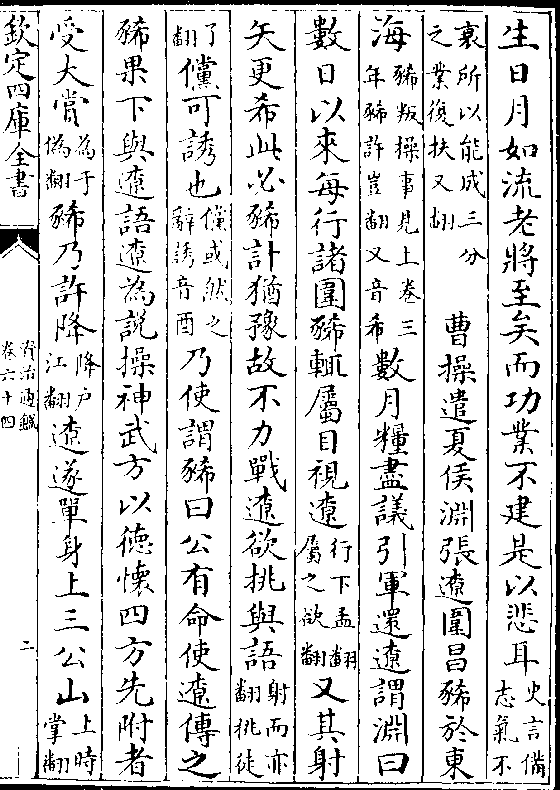 生日月如流老將至矣而功業不建是以悲耳史言備志氣不
衰所以能成三分之業復扶又翻 曹操遣夏侯淵張遼圍昌豨於東
海豨叛操事見上卷三年豨許豈翻又音希數月糧盡議引軍還遼謂淵曰
數日以來每行諸圍豨輒屬目視遼行下孟翻屬之欲翻又其射
矢更希此必豨計猶豫故不力戰遼欲挑與語射而亦翻挑徒
了翻儻可誘也儻或然之辭誘音酉乃使謂豨曰公有命使遼傳之
豨果下與遼語遼為說操神武方以德懷四方先附者
受大賞為于偽翻豨乃許降降户江翻遼遂單身上三公山上時掌翻
欽定四庫全書
資治通鑑
卷六十四
二